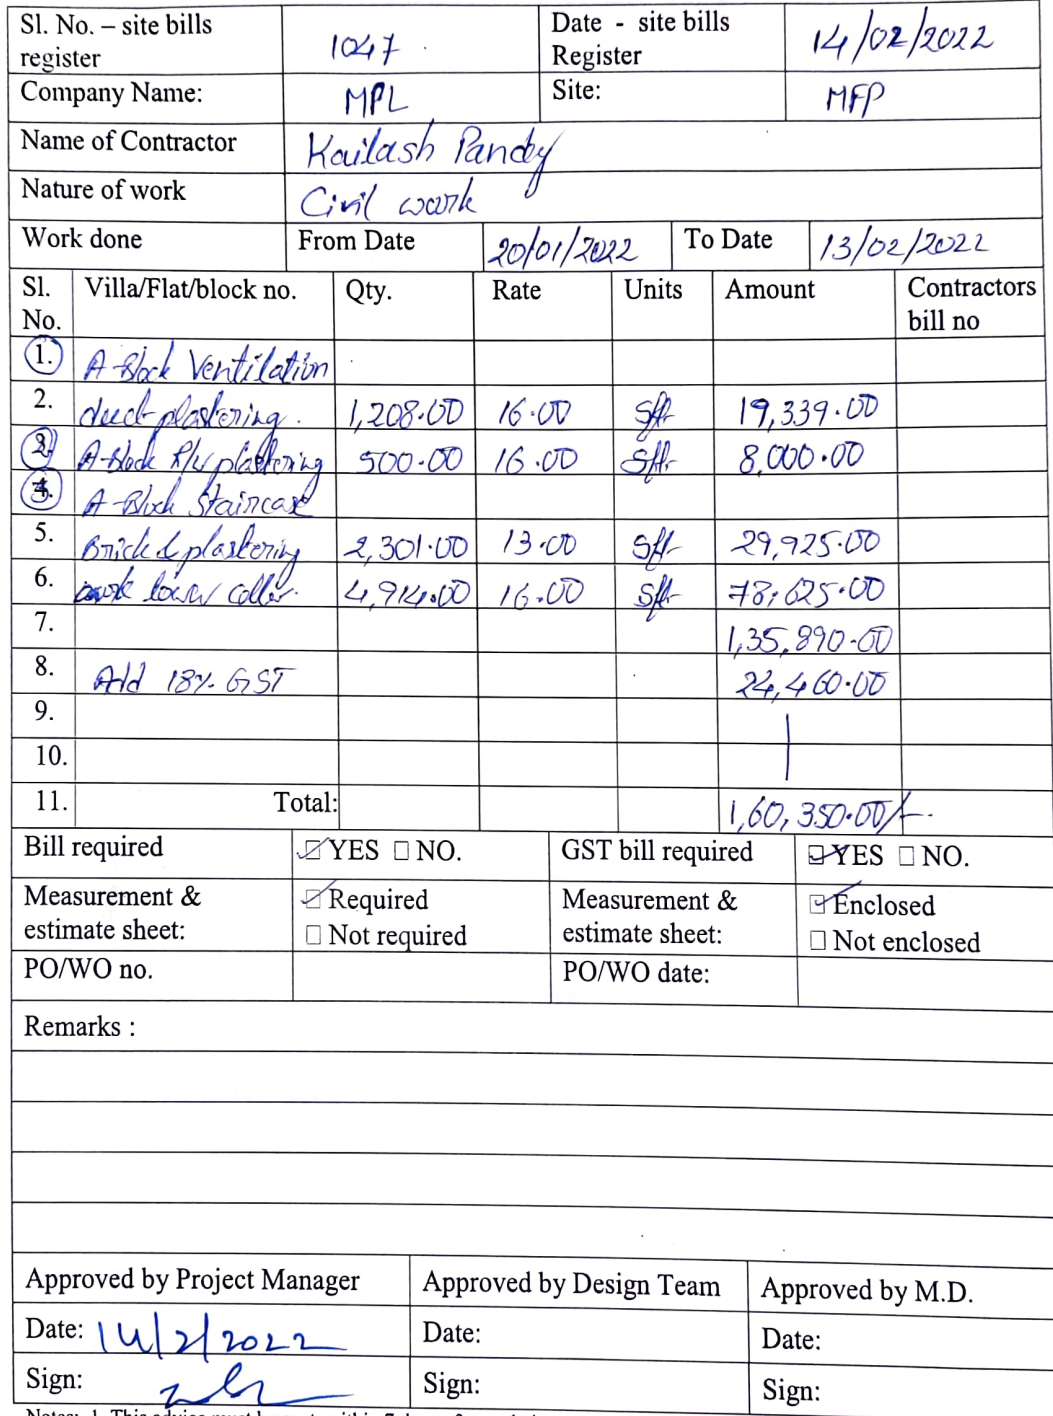 Sl. No. – site bills register 1047 Date - site bills Register 14/02/2022
Company Name: MPL Site: MFP
Name of Contractor Kailash Pandy
Nature of work Civil work
Work done From Date 20/01/2022 To Date 13/02/2022
Sl. No. Villa/Flat/block no. Qty. Rate Units Amount Contractors bill no
1. A-Block Ventilation
2. duct plastering. 1,208.00 16.00 Sft 19,339.00
3. A-Block plastering 500.00 16.00 Sft 8,000.00
A-Block Staircase
5. Brick & plastering 2,301.00 13.00 Sft 29,925.00
6. work 4,914.00 16.00 Sft 78,625.00
7. 1,35,890.00
8. Add 18% GST 24,460.00
9.
10.
11. Total: 1,60,350.00/-
Bill required ☑ YES ☐ NO. GST bill required ☑ YES ☐ NO.
Measurement & estimate sheet: ☑ Required ☐ Not required Measurement & estimate sheet: ☑ Enclosed ☐ Not enclosed
PO/WO no. PO/WO date:
Remarks :
Approved by Project Manager Approved by Design Team Approved by M.D.
Date: 14/2/2022 Date: Date:
Sign: Sign: Sign: